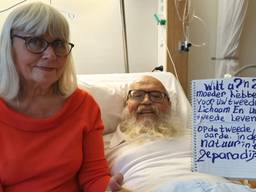 Wilt u mijn
moeder hebben
voor Uw tweede
Lichaam En Uw
tweede Leven
op de tweede
aarde. in de
natuur in 't
geparadijs